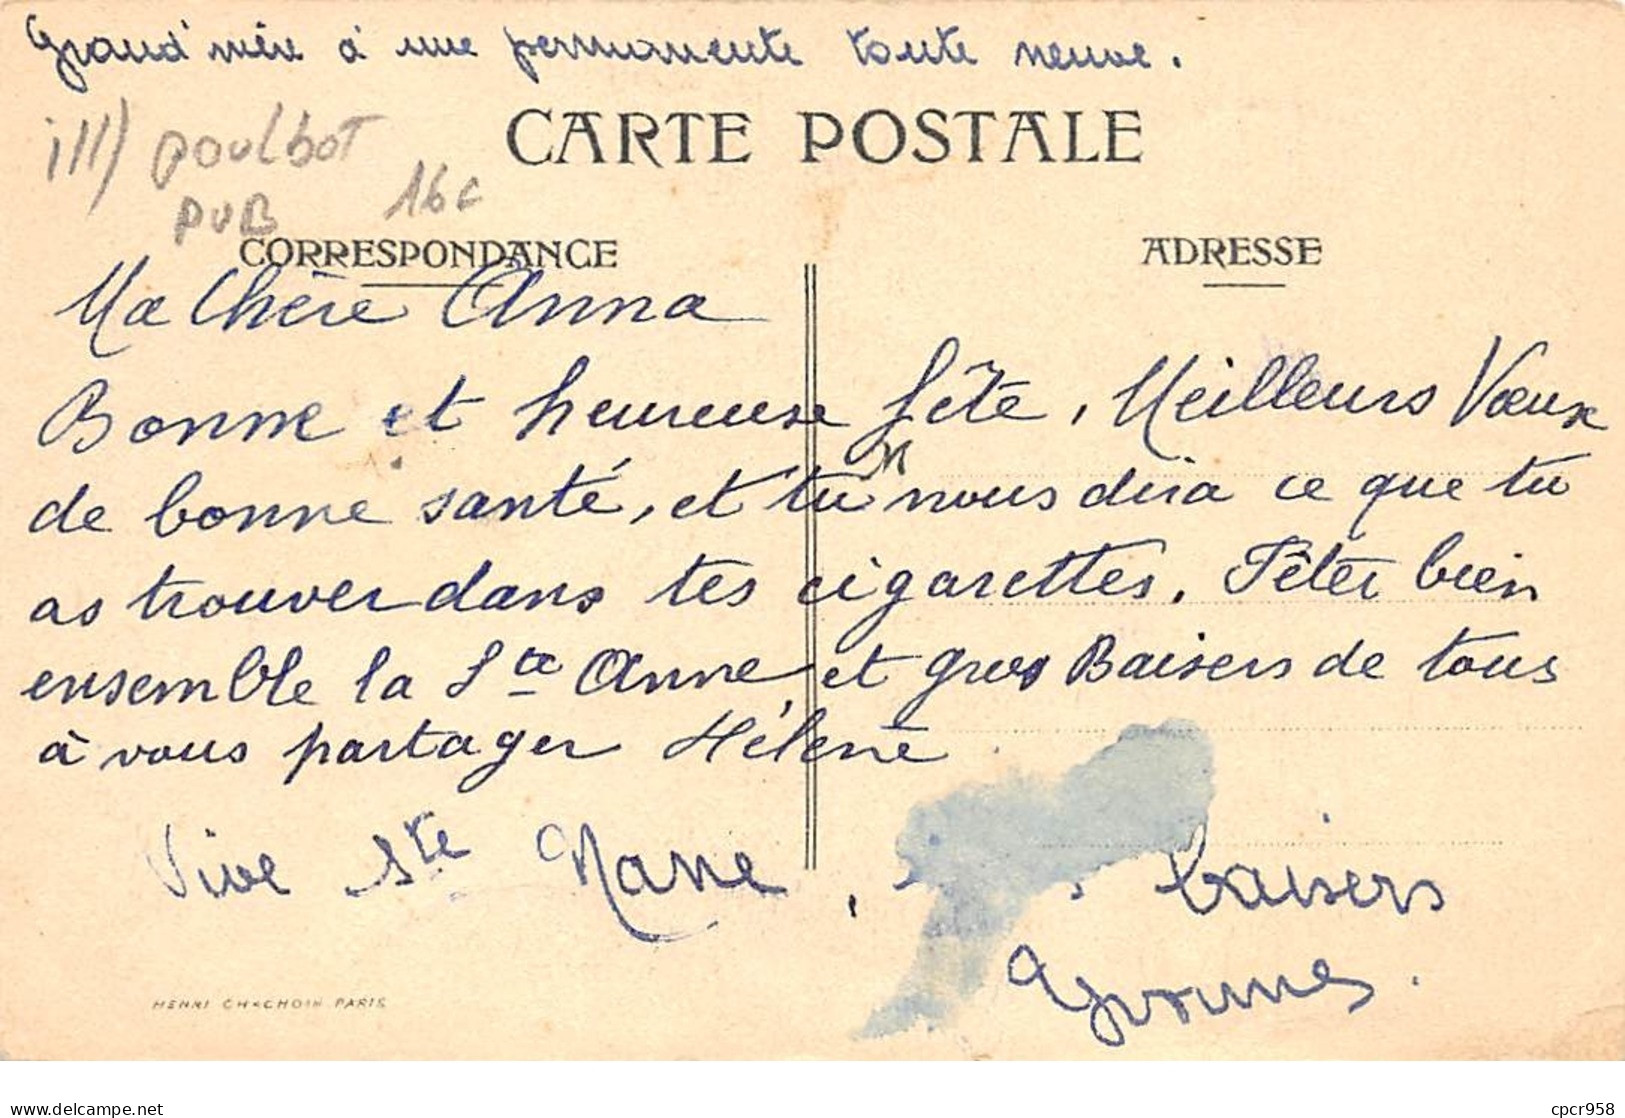 Grand'mère à une permanente toute neuve.
CARTE POSTALE
ill) poulbot
PUB 16c
CORRESPONDANCE ADRESSE
Ma Chère Anna
Bonne et heureuse fête, Meilleurs Vœux
de bonne santé, et tu nous dira ce que tu
as trouver dans tes cigarettes. Fêter bien
ensemble la Ste Anne, et gros Baisers de tous
à vous partager Hélène
Vive Ste Nane, baisers
Yvonne.
HENRI CHACHOIN PARIS
delcampe.net cpcr958